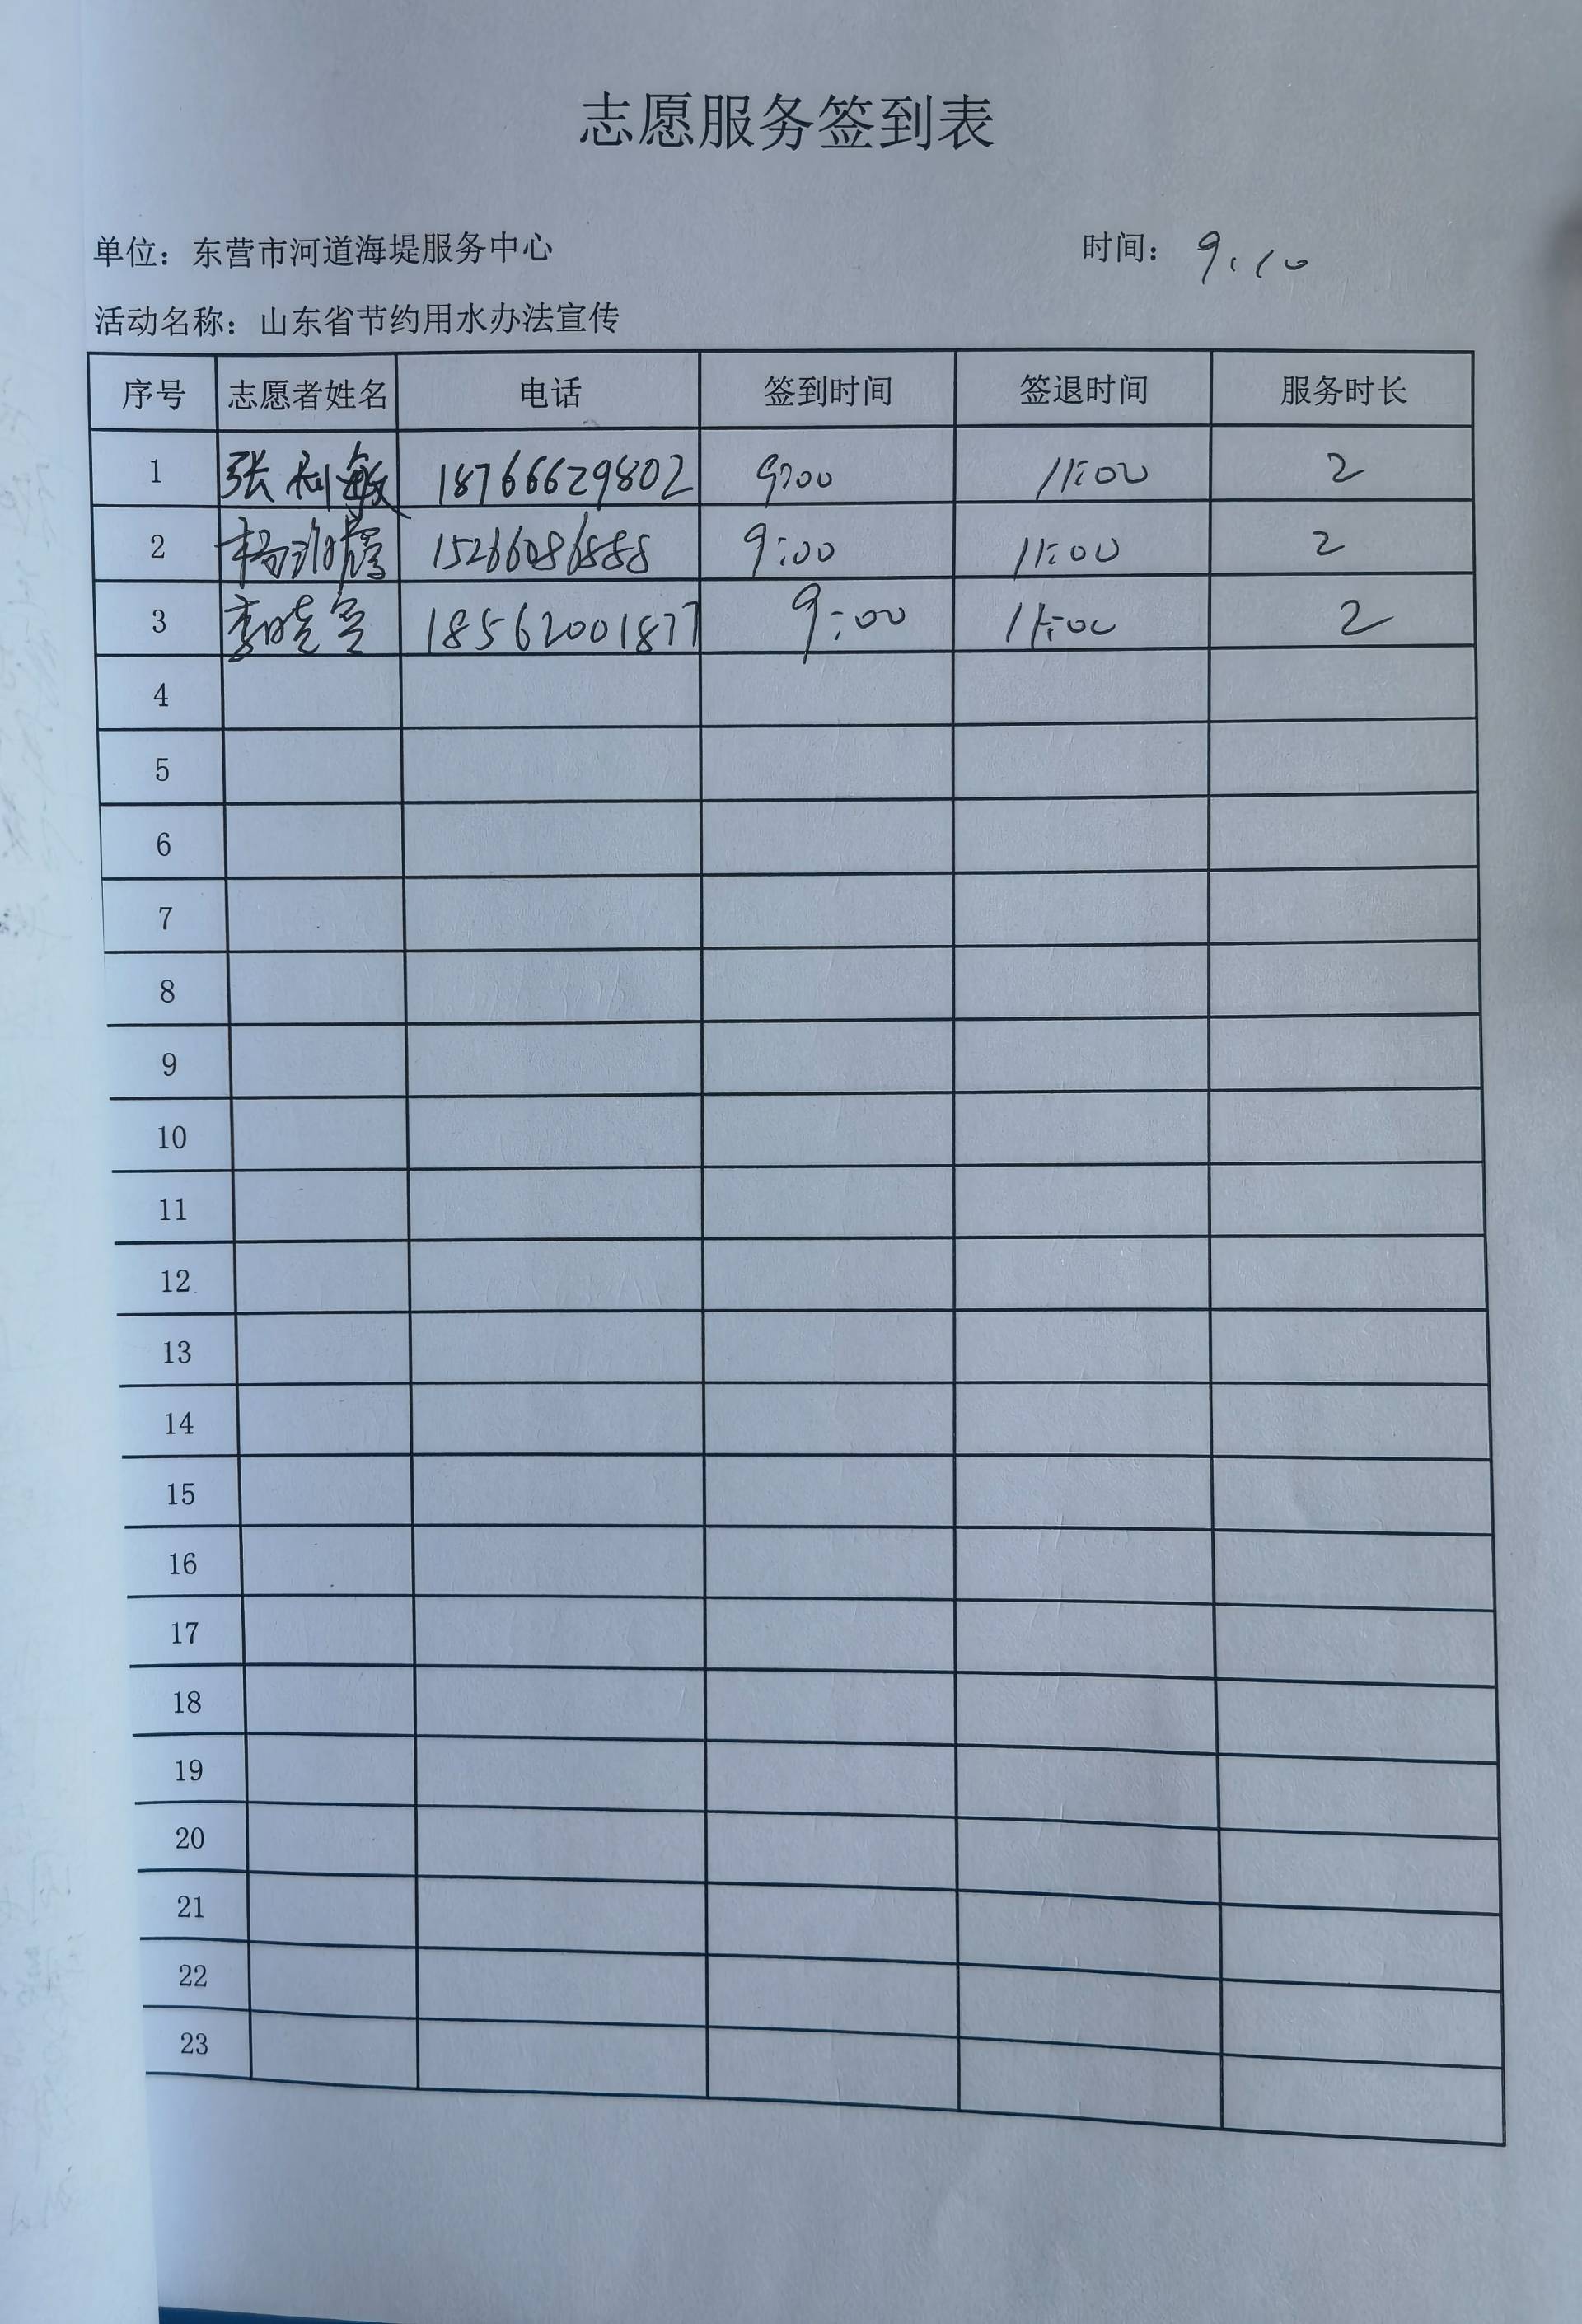 志愿服务签到表
单位：东营市河道海堤服务中心 时间：9.10
活动名称：山东省节约用水办法宣传
序号 志愿者姓名 电话 签到时间 签退时间 服务时长
1 张利敏 18766629802 9:00 11:00 2
2 杨 15266086888 9:00 11:00 2
3 李晓 18562001877 9:00 11:00 2
4
5
6
7
8
9
10
11
12
13
14
15
16
17
18
19
20
21
22
23